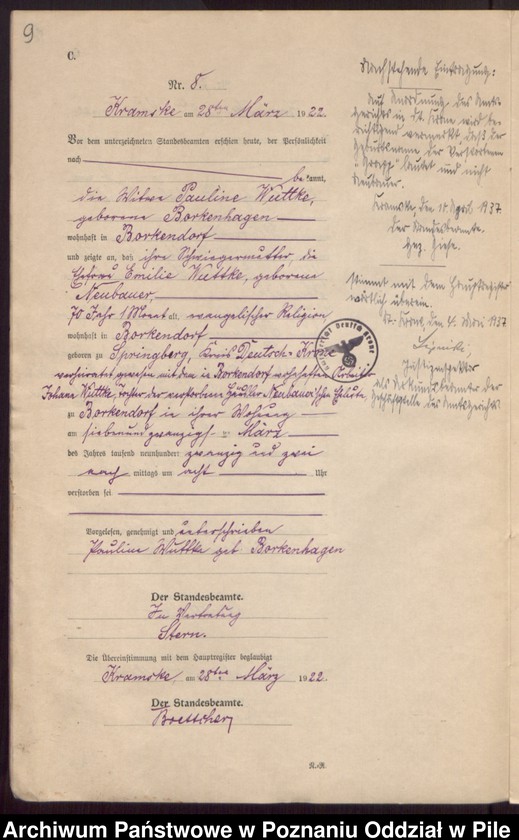 9
C.
Nr. 8.
Kramske am 28ten März 1922.
Vor dem unterzeichneten Standesbeamten erschien heute, der Persönlichkeit
nach
bekannt,
die Witwe Pauline Wuttke,
geborene Borkenhagen
wohnhaft in Borkendorf
und zeigte an, daß ihre Schwiegermutter, die
Emilie Wuttke, geborene
Neubauer,
70 Jahr 1 Monat alt, evangelischer Religion
wohnhaft in Borkendorf
geboren zu Springberg, Kreis Deutsch-Krone
verheiratet gewesen mit dem in Borkendorf verstorbenen
Johann Wuttke, Tochter der verstorbenen Neubauer'schen Eheleute
zu Borkendorf in ihrer Wohnung
am siebenundzwanzigsten März
des Jahres tausend neunhundert zwanzig und zwei
nachmittags um acht Uhr
verstorben sei
Vorgelesen, genehmigt und unterschrieben
Pauline Wuttke geb Borkenhagen
Der Standesbeamte.
In Vertretung
Stern.
Die Übereinstimmung mit dem Hauptregister beglaubigt
Kramske am 28ten März 1922.
Der Standesbeamte.
Boettcher
K.A.
Nachstehende Eintragung:
Auf Anordnung des Amts-
gerichts in Dt. Krone wird be-
richtigend vermerkt, daß der
Geburtsname der Verstorbenen
lautet und nicht
Neubauer.
Kramske, den April 1937
Der Standesbeamte.
gez.
stimmt mit dem Hauptregister
wörtlich überein.
Dt. Krone, den 4. Mai 1937
Justizinspektor
als Urkundsbeamter der
Geschäftsstelle des Amtsgerichts.
Archiwum Państwowe w Poznaniu Oddział w Pile